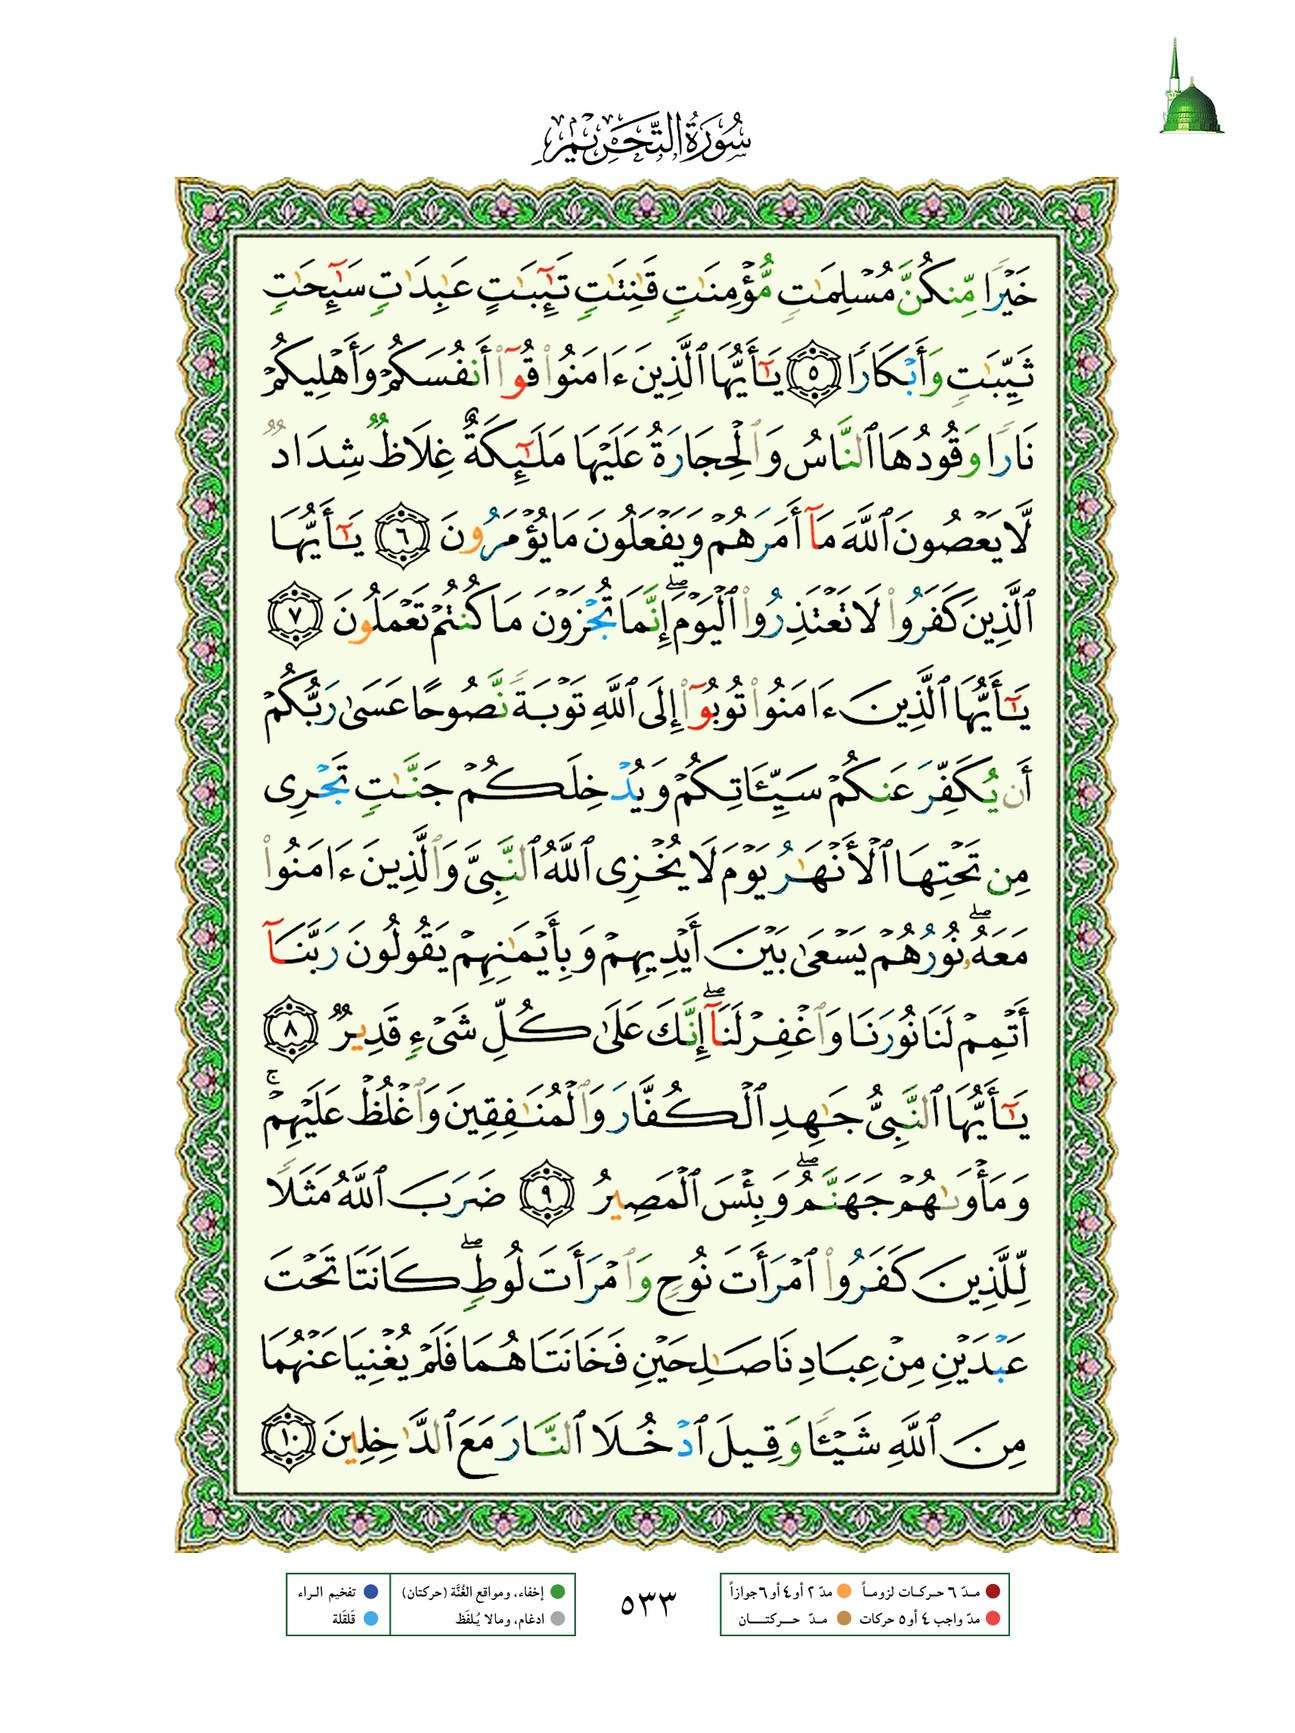 سُورَةُ التَّحْرِيمِ
خَيْرًا مِّنكُنَّ مُسْلِمَٰتٍ مُّؤْمِنَٰتٍ قَٰنِتَٰتٍ تَٰٓئِبَٰتٍ عَٰبِدَٰتٍ سَٰٓئِحَٰتٍ
ثَيِّبَٰتٍ وَأَبْكَارًا ٥ يَٰٓأَيُّهَا ٱلَّذِينَ ءَامَنُوا۟ قُوٓا۟ أَنفُسَكُمْ وَأَهْلِيكُمْ
نَارًا وَقُودُهَا ٱلنَّاسُ وَٱلْحِجَارَةُ عَلَيْهَا مَلَٰٓئِكَةٌ غِلَاظٌ شِدَادٌ
لَّا يَعْصُونَ ٱللَّهَ مَآ أَمَرَهُمْ وَيَفْعَلُونَ مَا يُؤْمَرُونَ ٦ يَٰٓأَيُّهَا
ٱلَّذِينَ كَفَرُوا۟ لَا تَعْتَذِرُوا۟ ٱلْيَوْمَ ۖ إِنَّمَا تُجْزَوْنَ مَا كُنتُمْ تَعْمَلُونَ ٧
يَٰٓأَيُّهَا ٱلَّذِينَ ءَامَنُوا۟ تُوبُوٓا۟ إِلَى ٱللَّهِ تَوْبَةً نَّصُوحًا عَسَىٰ رَبُّكُمْ
أَن يُكَفِّرَ عَنكُمْ سَيِّـَٔاتِكُمْ وَيُدْخِلَكُمْ جَنَّٰتٍ تَجْرِى
مِن تَحْتِهَا ٱلْأَنْهَٰرُ يَوْمَ لَا يُخْزِى ٱللَّهُ ٱلنَّبِىَّ وَٱلَّذِينَ ءَامَنُوا۟
مَعَهُۥ ۖ نُورُهُمْ يَسْعَىٰ بَيْنَ أَيْدِيهِمْ وَبِأَيْمَٰنِهِمْ يَقُولُونَ رَبَّنَآ
أَتْمِمْ لَنَا نُورَنَا وَٱغْفِرْ لَنَآ ۖ إِنَّكَ عَلَىٰ كُلِّ شَىْءٍ قَدِيرٌ ٨
يَٰٓأَيُّهَا ٱلنَّبِىُّ جَٰهِدِ ٱلْكُفَّارَ وَٱلْمُنَٰفِقِينَ وَٱغْلُظْ عَلَيْهِمْ ۚ
وَمَأْوَىٰهُمْ جَهَنَّمُ ۖ وَبِئْسَ ٱلْمَصِيرُ ٩ ضَرَبَ ٱللَّهُ مَثَلًا
لِّلَّذِينَ كَفَرُوا۟ ٱمْرَأَتَ نُوحٍ وَٱمْرَأَتَ لُوطٍ ۖ كَانَتَا تَحْتَ
عَبْدَيْنِ مِنْ عِبَادِنَا صَٰلِحَيْنِ فَخَانَتَاهُمَا فَلَمْ يُغْنِيَا عَنْهُمَا
مِنَ ٱللَّهِ شَيْـًٔا وَقِيلَ ٱدْخُلَا ٱلنَّارَ مَعَ ٱلدَّٰخِلِينَ ١٠
مدّ ٦ حركات لزوماً مدّ ٢ أو ٤ أو ٦ جوازاً
مدّ واجب ٤ أو ٥ حركات مدّ حركتان
٥٣٣
إخفاء، ومواقع الغُنَّة (حركتان) تفخيم الراء
ادغام، ومالا يُلفَظ قَلقَلة